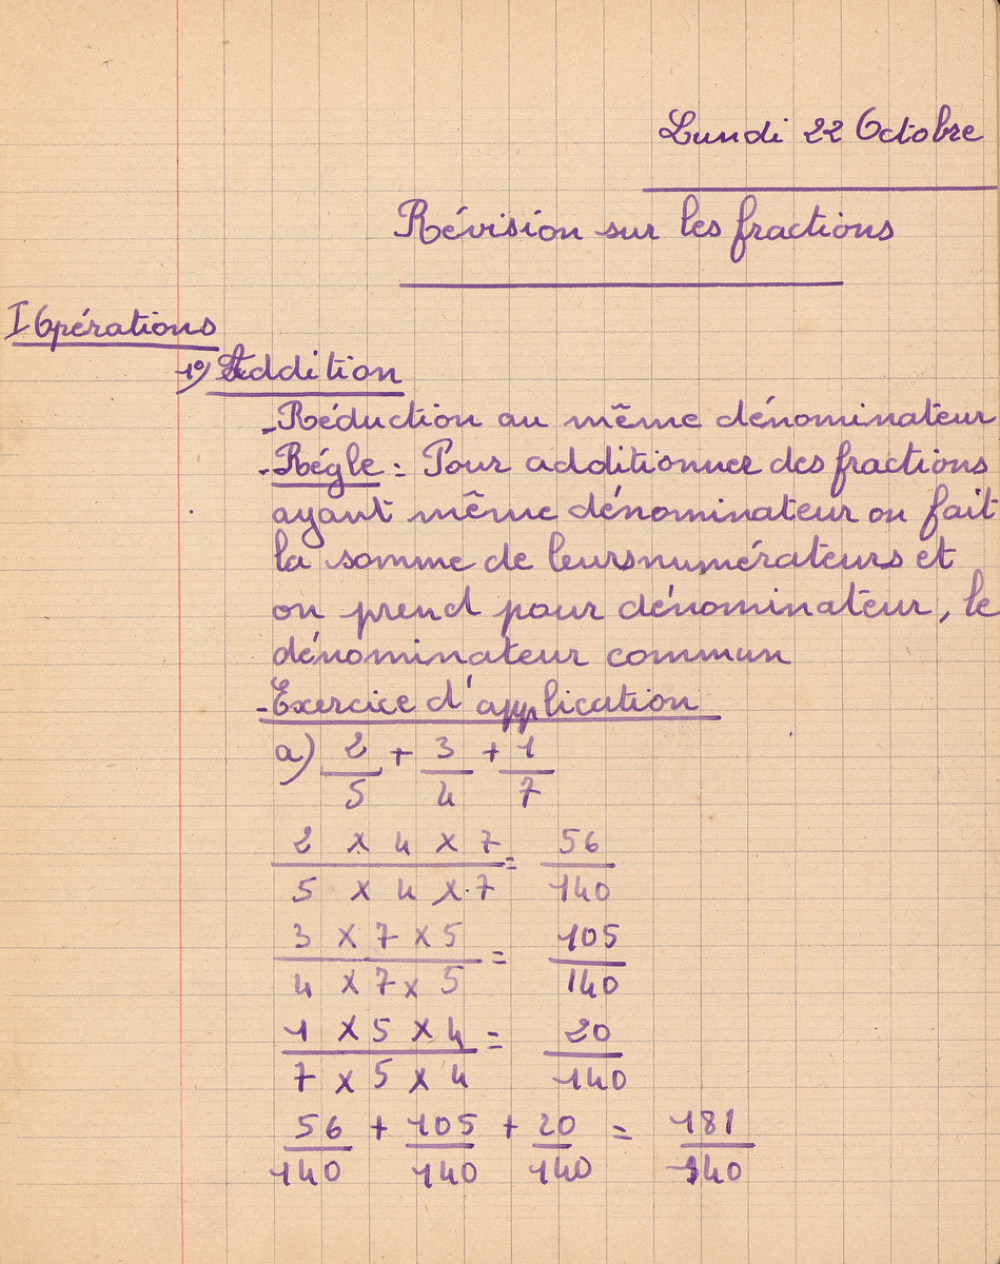 Lundi 22 Octobre
Révision sur les fractions
I Opérations
1º) Addition
- Réduction au même dénominateur
- Régle : Pour additionner des fractions
ayant même dénominateur on fait
la somme de leurs numérateurs et
on prend pour dénominateur, le
dénominateur commun
- Exercice d'application
a) 2/5 + 3/4 + 1/7
2 x 4 x 7 / 5 x 4 x 7 = 56/140
3 x 7 x 5 / 4 x 7 x 5 = 105/140
1 x 5 x 4 / 7 x 5 x 4 = 20/140
56/140 + 105/140 + 20/140 = 181/140